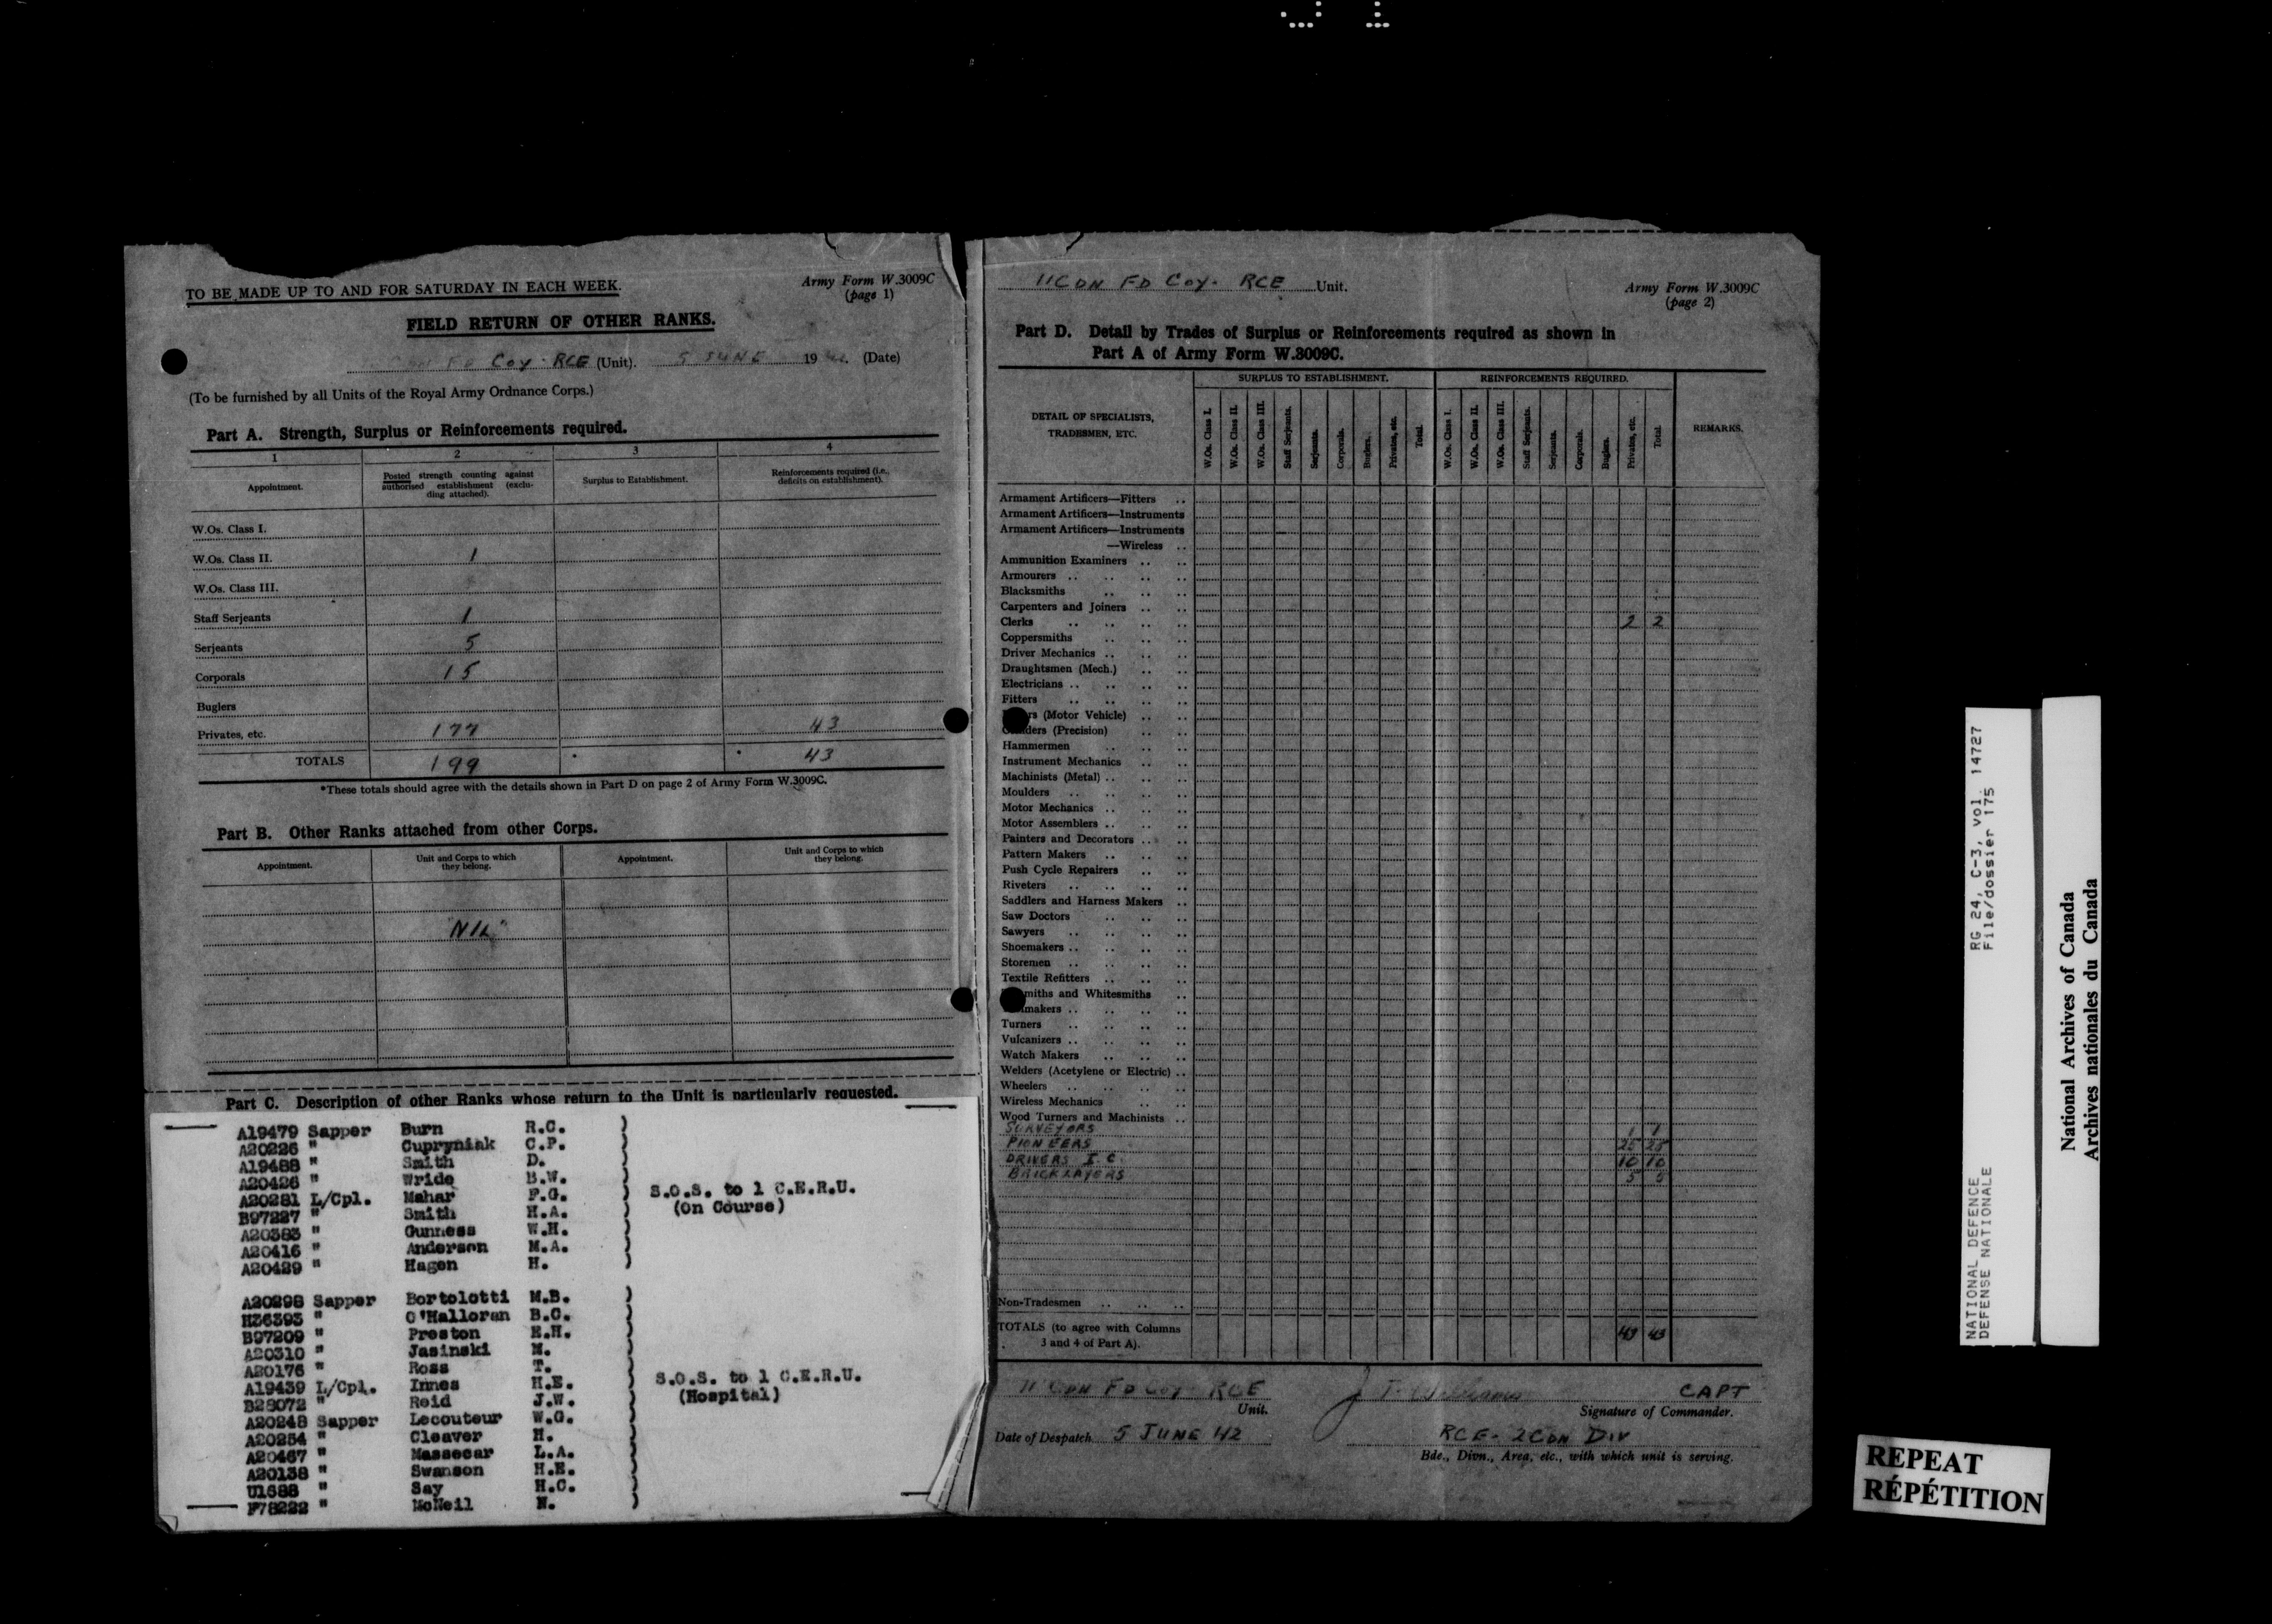 TO BE MADE UP TO AND FOR SATURDAY IN EACH WEEK.
Army Form W.3009C
(page 1)
FIELD RETURN OF OTHER RANKS.
FD COY. RCE (Unit). 5 JUNE 19 (Date)
(To be furnished by all Units of the Royal Army Ordnance Corps.)
Part A. Strength, Surplus or Reinforcements required.
1 2 3 4
Appointment. Posted strength counting against authorised establishment (excluding attached). Surplus to Establishment. Reinforcements required (i.e., deficits on establishment).
W.Os. Class I.
W.Os. Class II. 1
W.Os. Class III.
Staff Serjeants 1
Serjeants 5
Corporals 15
Buglers
Privates, etc. 177 43
TOTALS 199 * * 43
*These totals should agree with the details shown in Part D on page 2 of Army Form W.3009C.
Part B. Other Ranks attached from other Corps.
Appointment. Unit and Corps to which they belong. Appointment. Unit and Corps to which they belong.
"NIL"
Part C. Description of other Ranks whose return to the Unit is particularly requested.
A19479 Sapper Burn R.C. )
A20226 " Cupryniak C.P.
A19488 " Smith D. )
A20426 " Wride B.W.
A20281 L/Cpl. Mahar F.G. ) S.O.S. to 1 C.E.R.U.
B97227 " Smith H.A. ) (On Course)
A20383 " Gunness W.H. )
A20416 " Anderson M.A.
A20429 " Hagen H. )
A20298 Sapper Bortolotti M.B. )
H36393 " O'Halloran B.C. )
B97209 " Preston E.H. )
A20310 " Jasinski N. )
A20176 " Ross T. )
A19439 L/Cpl. Innes H.E. ) S.O.S. to 1 C.E.R.U.
B28072 " Reid J.W. ) (Hospital)
A20248 Sapper Lecouteur W.G. )
A20254 " Cleaver H. )
A20467 " Massecar L.A. )
A20138 " Swanson H.E. )
U1688 " Say H.C. )
F78222 " McNeil N. )
11 CDN FD COY. RCE Unit.
Army Form W.3009C
(page 2)
Part D. Detail by Trades of Surplus or Reinforcements required as shown in
Part A of Army Form W.3009C.
SURPLUS TO ESTABLISHMENT. REINFORCEMENTS REQUIRED.
DETAIL OF SPECIALISTS, TRADESMEN, ETC.
W.Os. Class I. W.Os. Class II. W.Os. Class III. Staff Serjeants. Serjeants. Corporals. Buglers. Privates, etc. Total. W.Os. Class I. W.Os. Class II. W.Os. Class III. Staff Serjeants. Serjeants. Corporals. Buglers. Privates, etc. Total. REMARKS.
Armament Artificers—Fitters ..
Armament Artificers—Instruments
Armament Artificers—Instruments
—Wireless ..
Ammunition Examiners .. ..
Armourers .. .. .. ..
Blacksmiths .. .. ..
Carpenters and Joiners .. ..
Clerks .. .. .. .. 2 2
Coppersmiths .. .. ..
Driver Mechanics .. .. ..
Draughtsmen (Mech.) .. ..
Electricians .. .. .. ..
Fitters .. .. .. ..
rs (Motor Vehicle) .. ..
ders (Precision) .. ..
Hammermen .. .. ..
Instrument Mechanics .. ..
Machinists (Metal) .. .. ..
Moulders .. .. .. ..
Motor Mechanics .. .. ..
Motor Assemblers .. .. ..
Painters and Decorators .. ..
Pattern Makers .. .. ..
Push Cycle Repairers .. ..
Riveters .. .. .. ..
Saddlers and Harness Makers ..
Saw Doctors .. .. ..
Sawyers .. .. .. ..
Shoemakers .. .. .. ..
Storemen .. .. .. ..
Textile Refitters .. .. ..
miths and Whitesmiths ..
makers .. .. .. ..
Turners .. .. .. ..
Vulcanizers .. .. .. ..
Watch Makers .. .. ..
Welders (Acetylene or Electric) ..
Wheelers .. .. .. ..
Wireless Mechanics .. ..
Wood Turners and Machinists ..
SURVEYORS 1 1
PIONEERS 25 25
DRIVERS I.C. 10 10
BRICKLAYERS 5 5
Non-Tradesmen .. .. ..
TOTALS (to agree with Columns 3 and 4 of Part A). 43 43
11 CDN FD COY RCE Unit.
J T Williams CAPT
Signature of Commander.
Date of Despatch 5 JUNE 42
RCE- 2 CDN DIV
Bde., Divn., Area, etc., with which unit is serving.
NATIONAL DEFENCE RG 24, C-3, vol. 14727
DEFENSE NATIONALE File/dossier 175
National Archives of Canada
Archives nationales du Canada
REPEAT
RÉPÉTITION